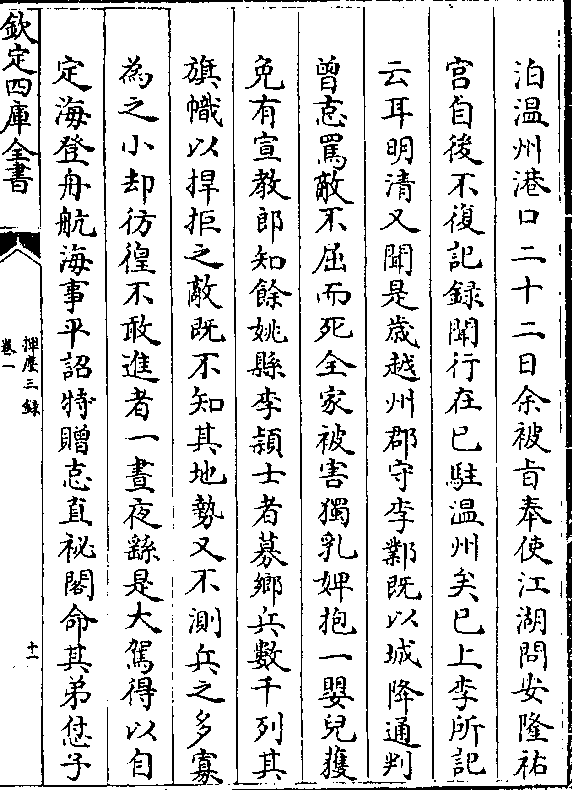 泊温州港口二十二日余被㫖奉使江湖問安隆祐
宫自後不復記録聞行在已駐温州矣已上李所記
云耳明清又聞是歳越州郡守李鄴既以城降通判
曾忞罵敵不屈而死全家被害獨乳婢抱一嬰兒獲
免有宣教郎知餘姚縣李頴士者募鄉兵數千列其
旗幟以捍拒之敵既不知其地勢又不測兵之多寡
為之小却彷徨不敢進者一晝夜繇是大駕得以自
定海登舟航海事平詔特贈忞直祕閣命其弟㤞子
欽定四庫全書
揮麈三録
卷一
十一